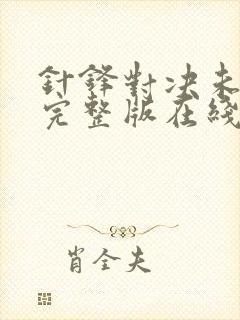 針鋒對决未
完整版在綫
肖全夫